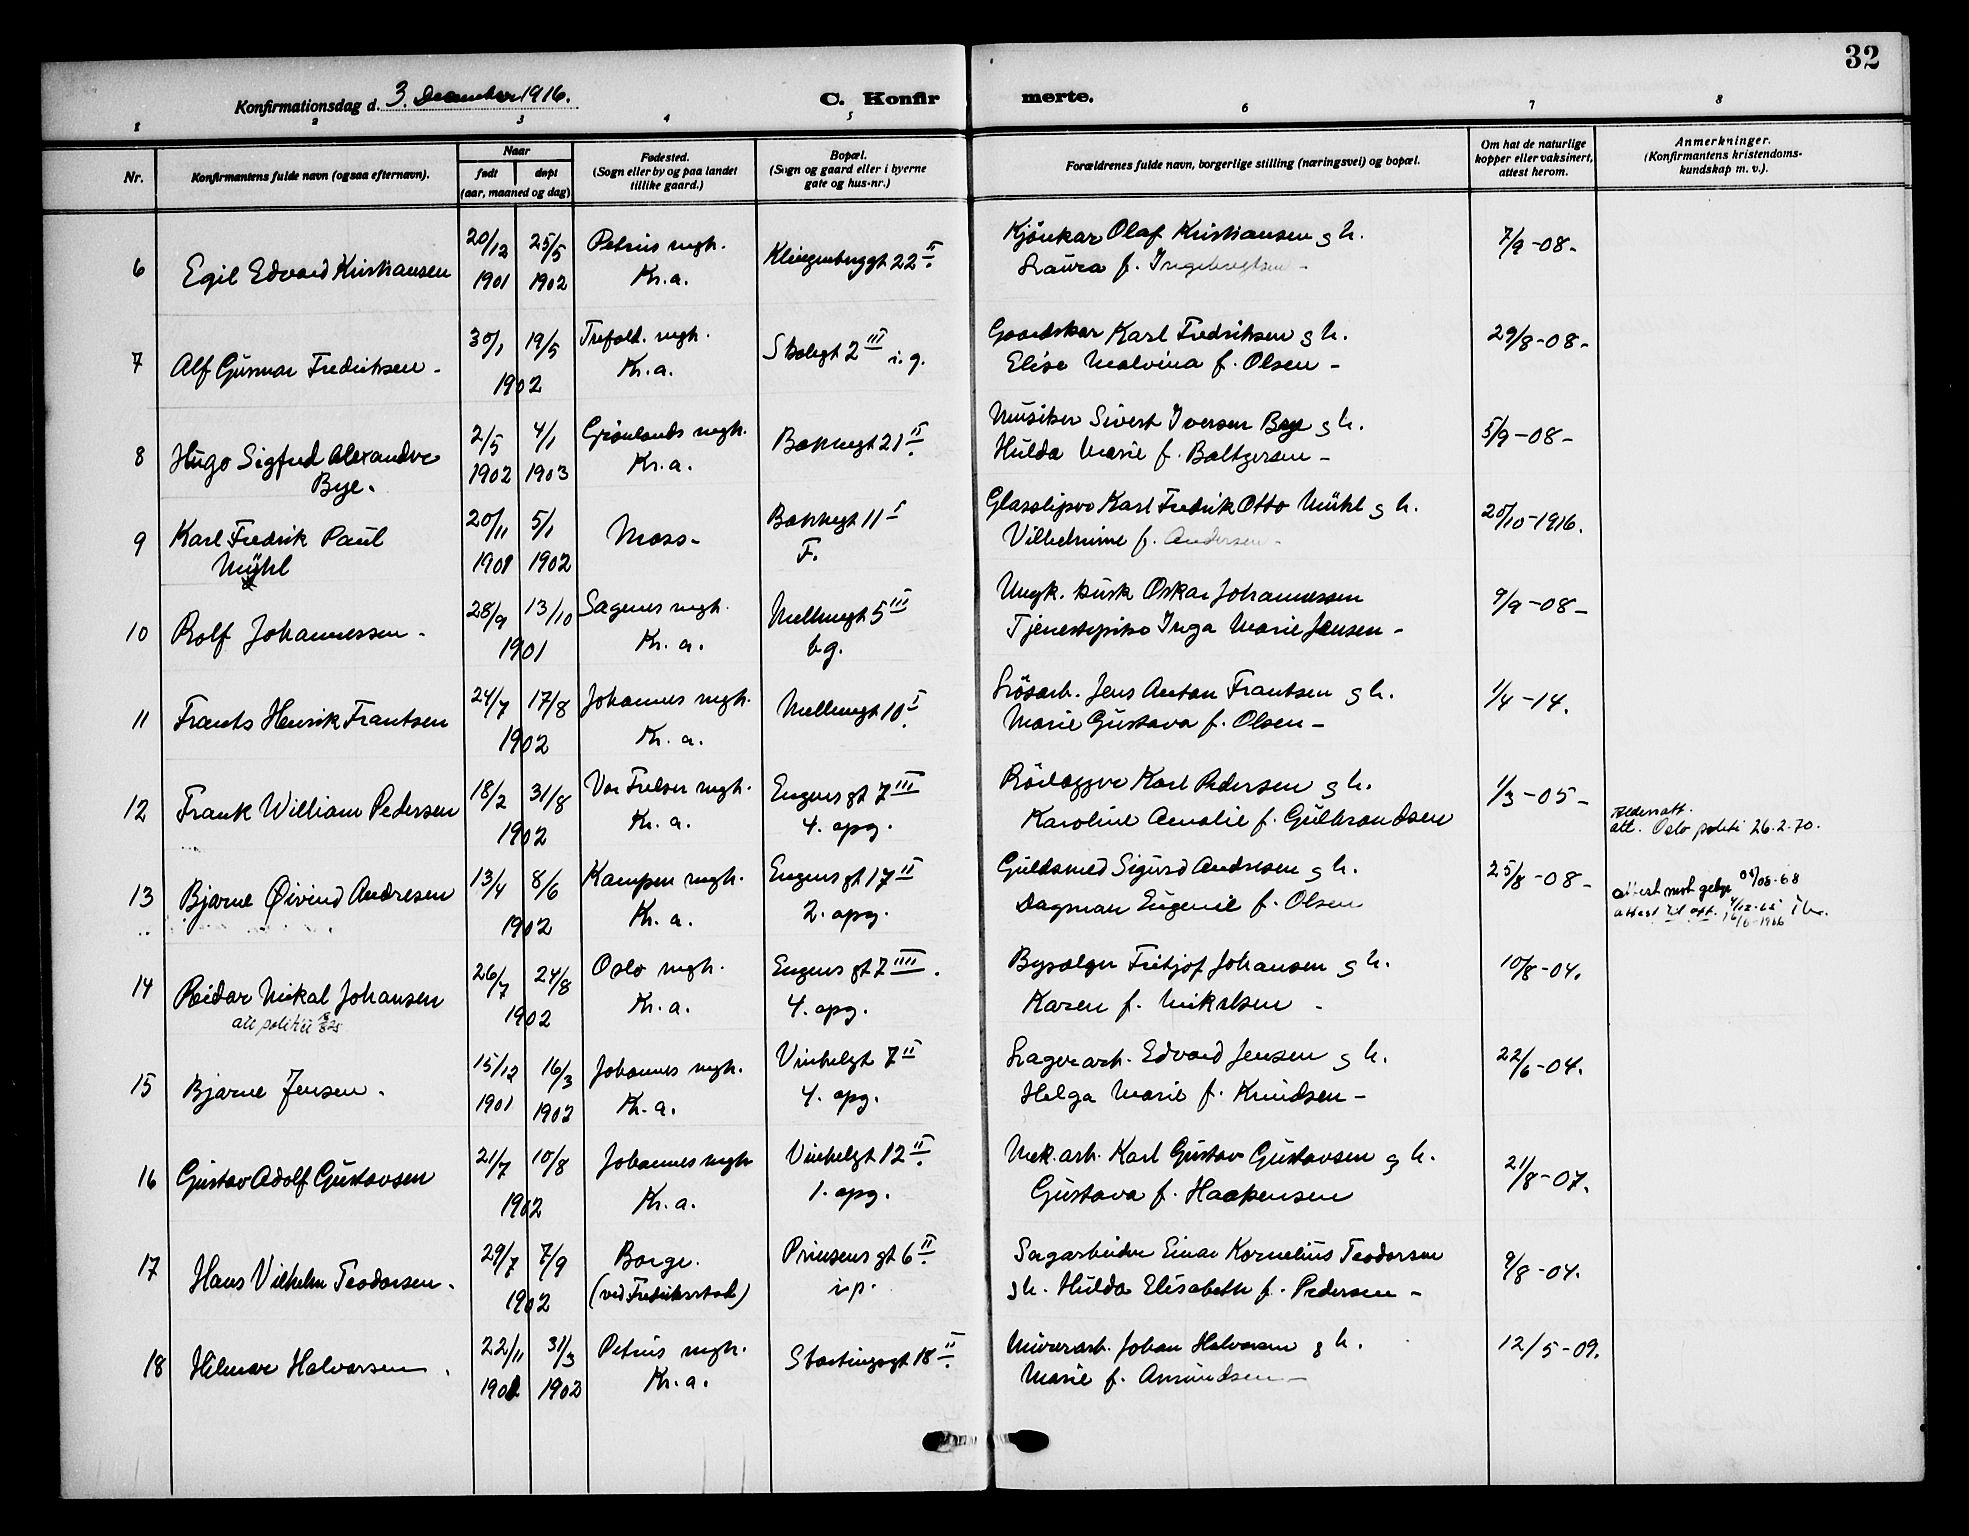 32
Konfirmationsdag d. 3. December 1916.
C. Konfir merte.
1 2 3 4 5 6 7 8
Nr.
Konfirmantens fulde navn (ogsaa efternavn).
Naar
født døpt
(aar, maaned og dag)
Fødested.
(Sogn eller by og paa landet
tillike gaard.)
Bopæl.
(Sogn og gaard eller i byerne
gate og hus-nr.)
Forældrenes fulde navn, borgerlige stilling (næringsvei) og bopæl.
Om hat de naturlige
kopper eller vaksinert,
attest herom.
Anmerkninger.
(Konfirmantens kristendoms-
kundskap m. v.).
6 Egil Edvard Kristiansen 20/12 1901 25/5 1902 Petrus mgh. Kr.a. Klingenberggt 22 II.
Kjörekar Olaf Kristiansen g h. 7/9-08-
Laura f. Ingebregtsen -
7 Alf Gunnar Fredriksen - 30/1 19/5 1902 Trefold. mgh. Kr.a. Skolegt 2 III i.g.
Gaardskar Karl Fredriksen g h. 29/8-08-
Elise Malvina f. Olsen -
8 Hugo Sigfred Alexander Bye. 2/5 1902 4/1 1903 Grönlands mgh. Kr.a. Bakkegt 21 II.
Musiker Sivert Iversen Bye g h. 5/9-08-
Hulda Marie f. Baltzersen -
9 Karl Fredrik Paul Mühl 20/11 1901 5/1 1902 Moss- Bakkegt 11 I F.
Glassliper Karl Fredrik Otto Mühl g h. 20/10-1916.
Vilhelmine f. Andersen -
10 Rolf Johannessen - 28/9 13/10 1901 Sagenes mgh. Kr.a. Mellemgt 5 III bg.
Ungk. kusk Oskar Johannessen 9/9-08-
Tjenestepike Inga Marie Jensen -
11 Frants Henrik Frantsen 24/7 17/8 1902 Johannes mgh. Kr.a. Mellemgt 10 I.
Lösarb. Jens Anton Frantsen g h. 1/4-14.
Marie Gustava f. Olsen -
12 Frank William Pedersen 18/2 31/8 1902 Vor Frelser mgh. Kr.a. Eugens gt 7 III 4. opg.
Rörlægger Karl Pedersen g h. 1/3-05-
Karoline Amalie f. Gulbrandsen
Aldersatt.
att. Oslo politi 26.2.70.
13 Bjarne Øivind Andresen 13/4 8/6 1902 Kampen mgh. Kr.a. Eugens gt 17 II 2. opg.
Guldsmed Sigurd Andresen g h. 25/8-08-
Dagmar Eugenie f. Olsen
14 Reidar Mikal Johansen 26/7 24/8 1902 Oslo mgh. Kr.a. Eugens gt 7 IIII. 4. opg.
Bysælger Fritjof Johansen g h. 10/8-04.
Karen f. Mikalsen -
15 Bjarne Jensen. 15/12 1901 16/3 1902 Johannes mgh. Kr.a. Vinkelgt 7 II 4. opg.
Lagerarb. Edvard Jensen g h. 22/6-04.
Helga Marie f. Knudsen -
16 Gustav Adolf Gustavsen 21/7 10/8 1902 Johannes mgh Kr.a. Vinkelgt 12 II. 1. opg.
Mek. arb. Karl Gustav Gustavsen g h. 21/8-07.
Gustava f. Haakensen
17 Hans Vilhelm Teodorsen. 29/7 7/9 1902 Borge. (ved Fredriksstad) Prinsens gt 6 II. i.p.
Sagarbeider Einar Kornelius Teodorsen 9/8-04.
gh. Hulda Elisabeth f. Pedersen -
18 Hilmar Halvorsen. 22/11 1901 31/3 1902 Petrus mgh. Kr.a. Stortingsgt 18 II.
Murerarb. Johan Halvorsen g h. 12/5-09.
Marie f. Amundsen -